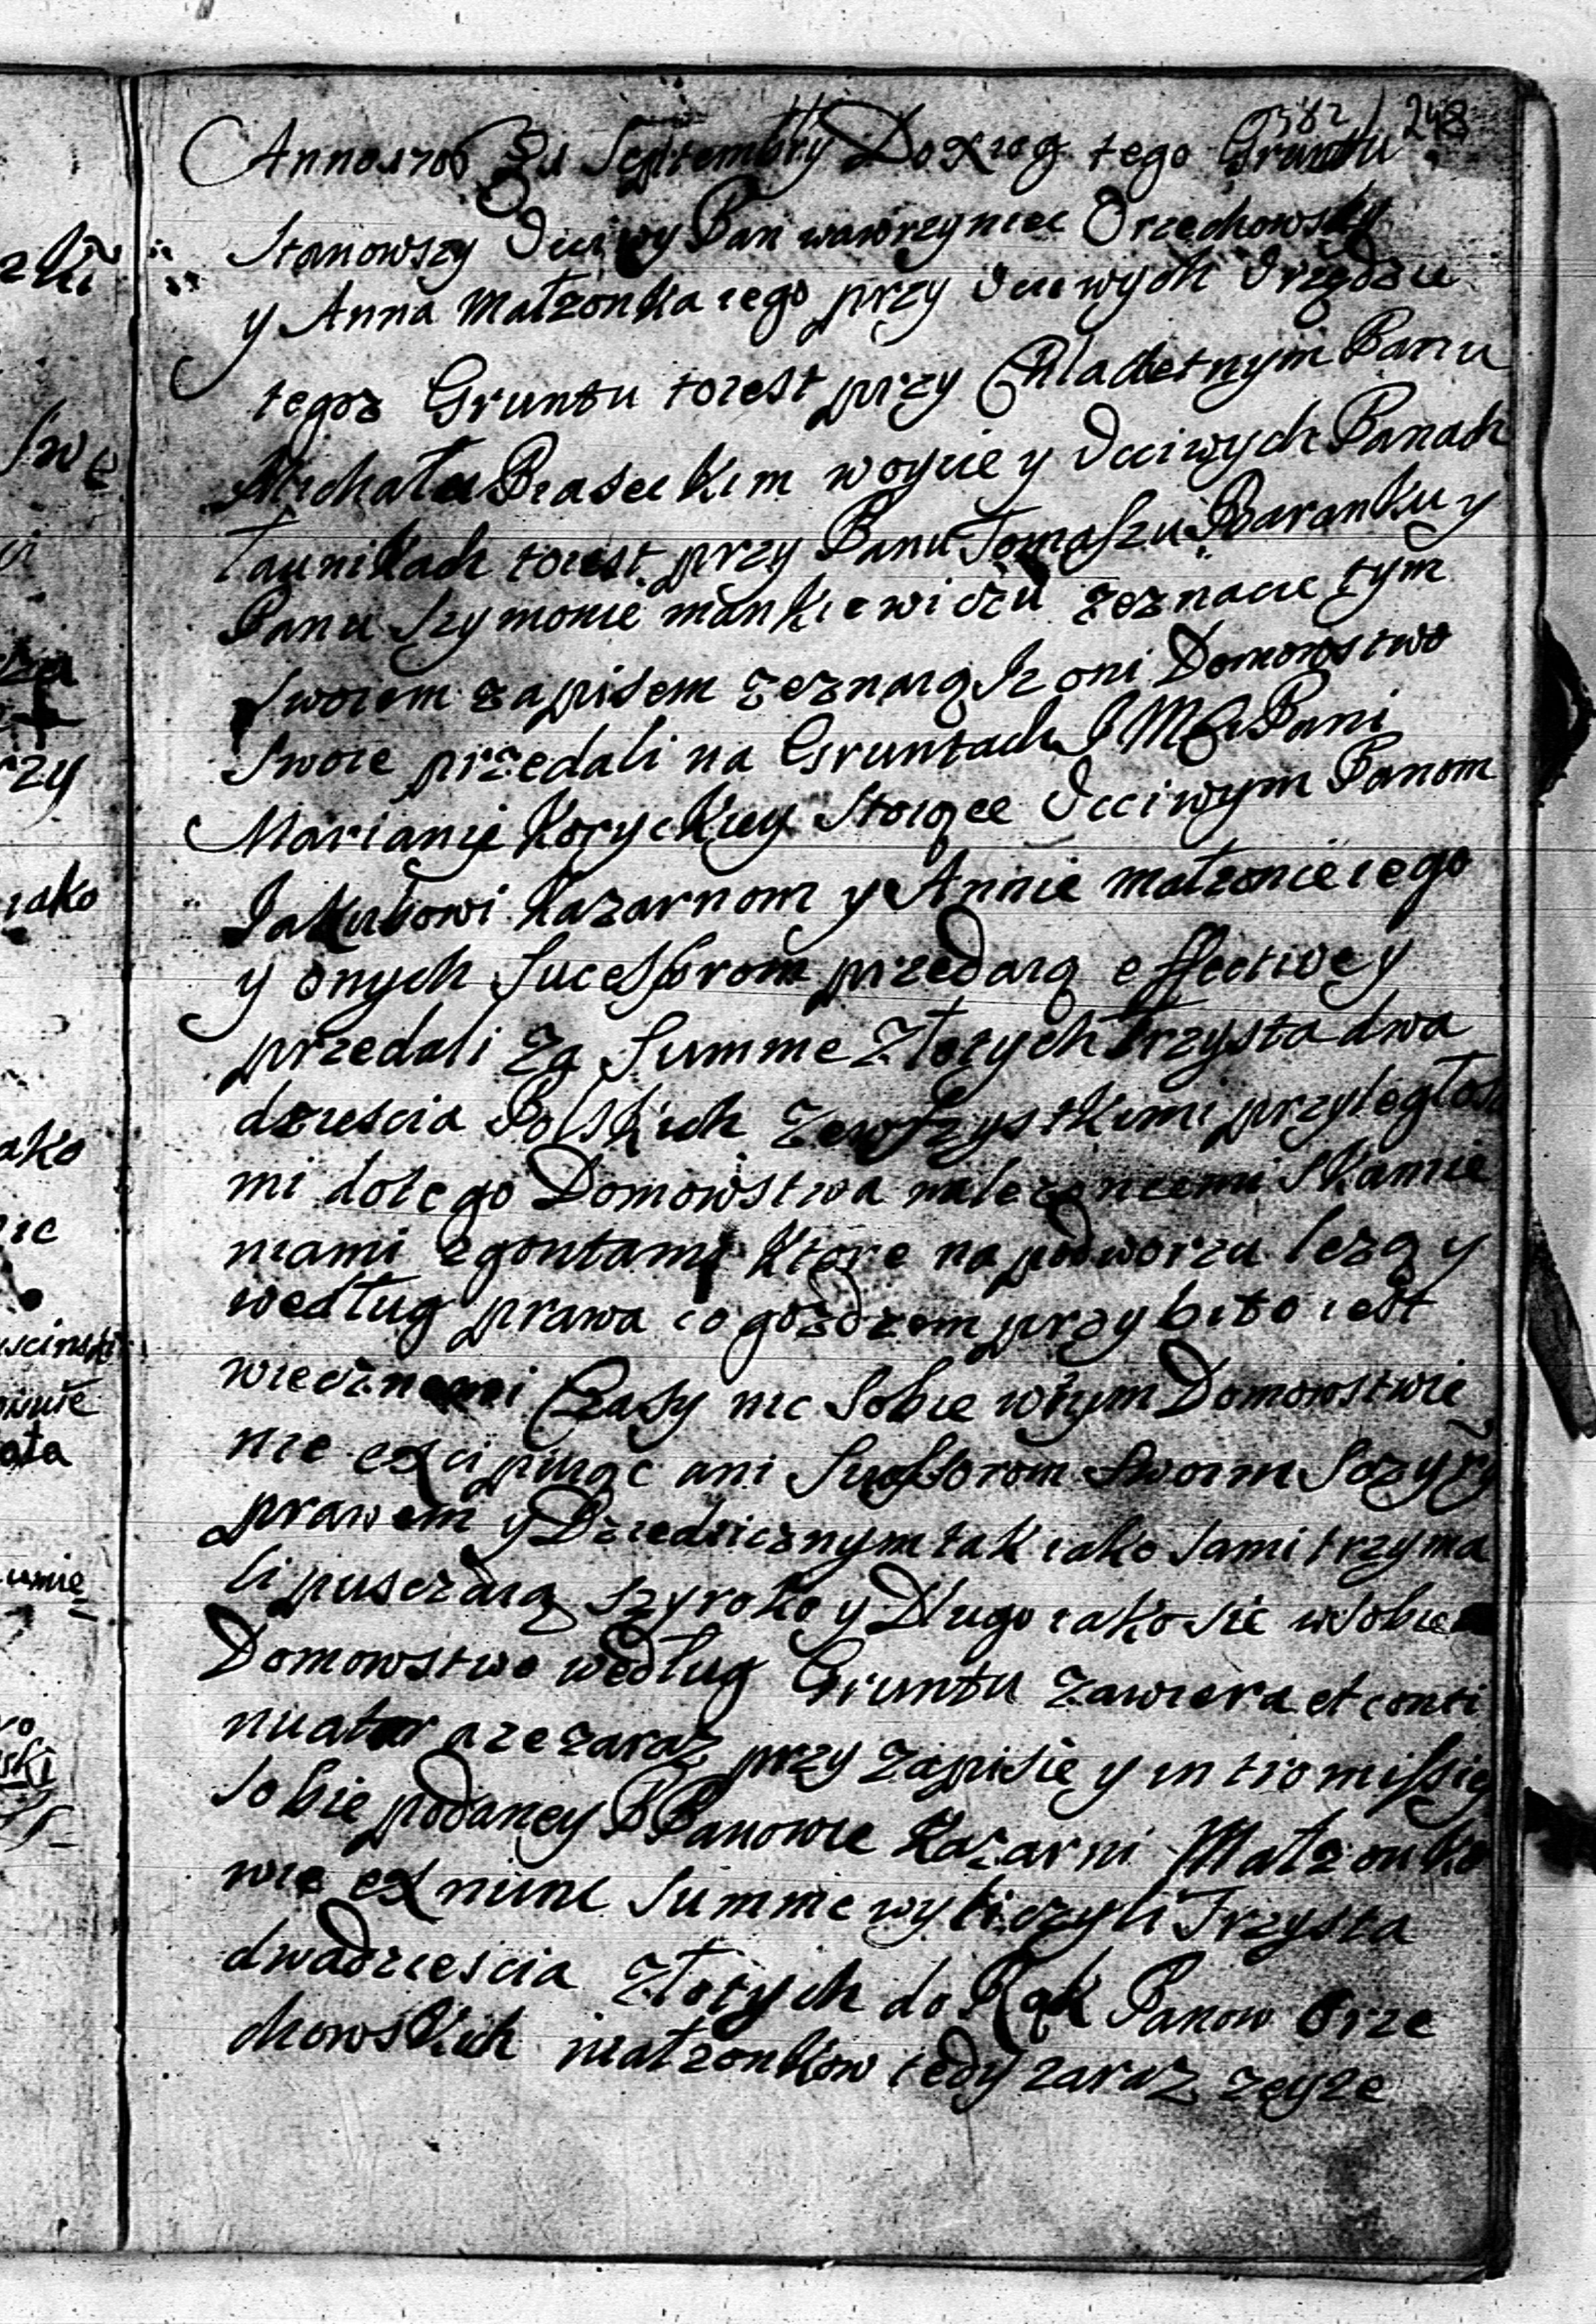 582 / 248
Anno 1706 D 21 Septembry Do Xiag tego Gruntu
Stanowszy Ucciwy Pan wawrzyniec Orzechowsky
y Anna małzonka iego przy Ucciwych Urzędzie
tegoz Gruntu toiest przy Szlachetnym Panu
Michału Piaseckim woycie y Ucciwych Panach
Ławnikach toiest przy Panu Tomaszu Baranku y
Panu Szymonie mankiewiczu zeznacie tym
swoiem zapisem zeznaią Iz oni Domowstwo
Swoie przedali na Gruntach I M Pani
Marianie Koryckiey Stoiące Ucciwym Panom
Jakubowi Kazarnom y Annie małzonie iego
y onych Sucessorom przedaią effective y
przedali za Summe Złotych trzysta dwa
dziescia Polskich zewszystkiemi przyległos
mi dotego Domowstwa nalezoncemi Skamie
niami zgontami Ktore na podworzu lezą y
według prawa co gozdzem przybito iest
wiecznemi Czasy nic Sobie wtym Domowstwie
nie excipuiąc ani Sucssorom Swoim
prawem y Dziedzicznym tak iako Sami trzyma
li puszczaią szyroko y Długo iako sie wsobie
Domowstwo według Gruntu zawiera et conti
nuatur aze zaraz przy zapisie y intromissiey
Sobie podaney PPanowie Kazarni Małzonko
wie ex nunc Summe wyliczyli Trzysta
dwadziescia Złotych do Rąk Panow Orze
chowskich małzonkow tedy zaraz zeyze